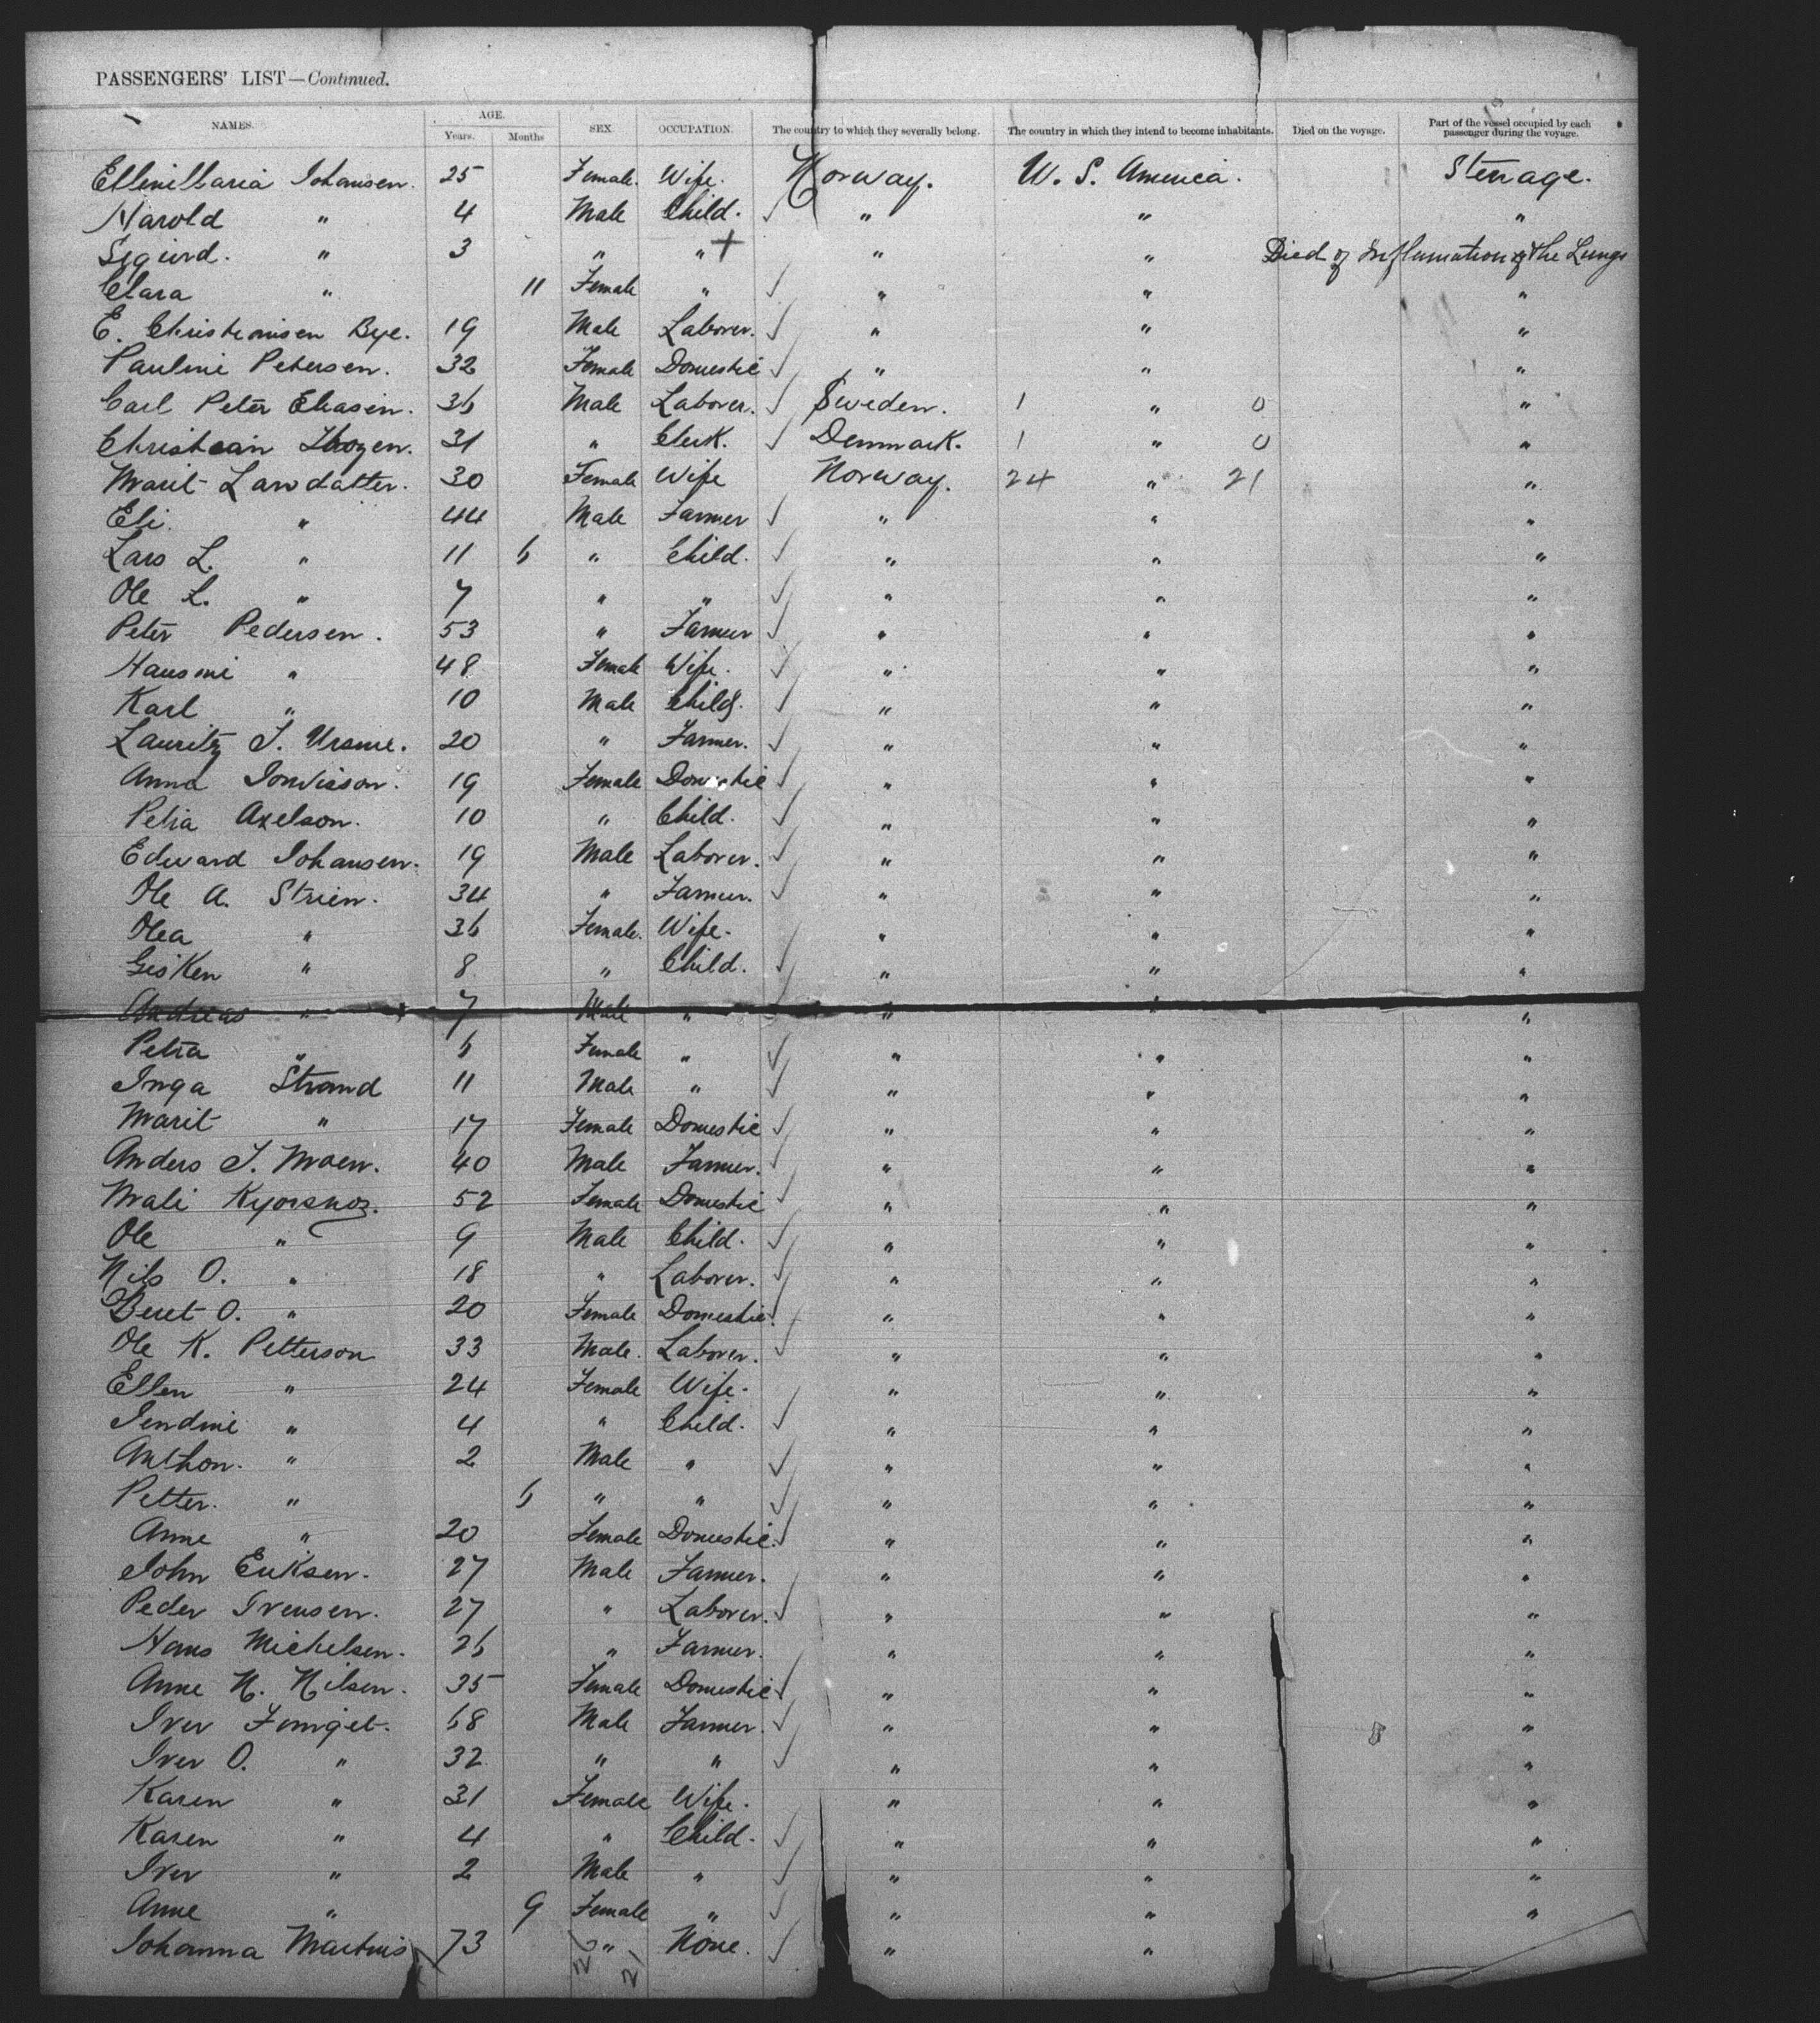 PASSENGERS' LIST—Continued.
NAMES. AGE. Years. Months SEX. OCCUPATION. The country to which they severally belong. The country in which they intend to become inhabitants. Died on the voyage. Part of the vessel occupied by each passenger during the voyage.
Johansen. 25 Female. Wife. Norway. U. S. America. Sterrage.
Harold " 4 Male Child. " " "
Sigurd. " 3 " " + " " Died of Inflamation of the Lungs
Clara " 11 Female " " " "
E. Christiansen Bye. 19 Male Laborer. " " "
Pauline Petersen. 32 Female Domestic " " "
Carl Peter Eliasen. 36 Male Laborer. Sweden. 1 " 0 "
Christian 31 " Clerk. Denmark. 1 " 0 "
Marit Larsdatter. 30 Female Wife Norway. 24 " 21 "
Eli. " 44 Male Farmer " " "
Lars L. " 11 6 " Child. " " "
Ole L. " 7 " " " " "
Peter Pedersen. 53 " Farmer " " "
Hansine " 48 Female Wife. " " "
Karl " 10 Male Child. " " "
Lauritz J. 20 " Farmer. " " "
Anna 19 Female Domestic " " "
Petra Axelson. 10 " Child. " " "
Edward Johansen. 19 Male Laborer. " " "
Ole A. Strien. 34 " Farmer. " " "
Olea " 36 Female. Wife. " " "
Gisken " 8 " Child. " " "
Andreas " 7 Male " " " "
Petra " 6 Female " " " "
Inga Strand 11 Male " " " "
Marit " 17 Female Domestic " " "
Anders J. Moen. 40 Male Farmer. " " "
Mali 52 Female Domestic " " "
Ole " 9 Male Child. " " "
Nils O. " 18 " Laborer. " " "
Beret O. " 20 Female Domestic. " " "
Ole K. Petterson 33 Male. Laborer. " " "
Ellen " 24 Female Wife. " " "
" 4 " Child. " " "
Anthon. " 2 Male " " " "
Petter. " 6 " " " " "
Anne " 20 Female Domestic. " " "
John Eriksen. 27 Male Farmer. " " "
Peder Ivensen. 27 " Laborer. " " "
Hans Michelsen. 26 " Farmer. " " "
Anne N. Nilsen. 35 Female Domestic " " "
Iver 68 Male Farmer. " " "
Iver O. " 32 " " " " "
Karen " 31 Female Wife. " " "
Karen " 4 " Child. " " "
Iver " 2 Male " " " "
Anne " 9 Female " " " "
Johanna 73 " None. " "
26 21